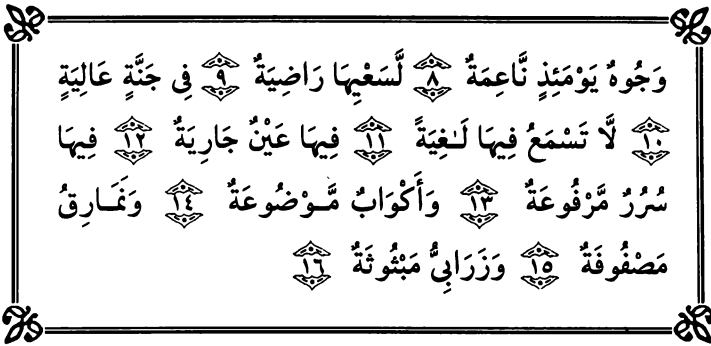 وَجُوهٌ يَوْمَئِذٍ نَّاعِمَةٌ ٨ لَّسَعْيِهَا رَاضِيَةٌ ٩ فِى جَنَّةٍ عَالِيَةٍ
١٠ لَّا تَسْمَعُ فِيهَا لَـٰغِيَةً ١١ فِيهَا عَيْنٌ جَارِيَةٌ ١٢ فِيهَا
سُرُرٌ مَّرْفُوعَةٌ ١٣ وَأَكْوَابٌ مَّـوْضُوعَةٌ ١٤ وَنَمَـارِقُ
مَصْفُوفَةٌ ١٥ وَزَرَابِىُّ مَبْثُوثَةٌ ١٦